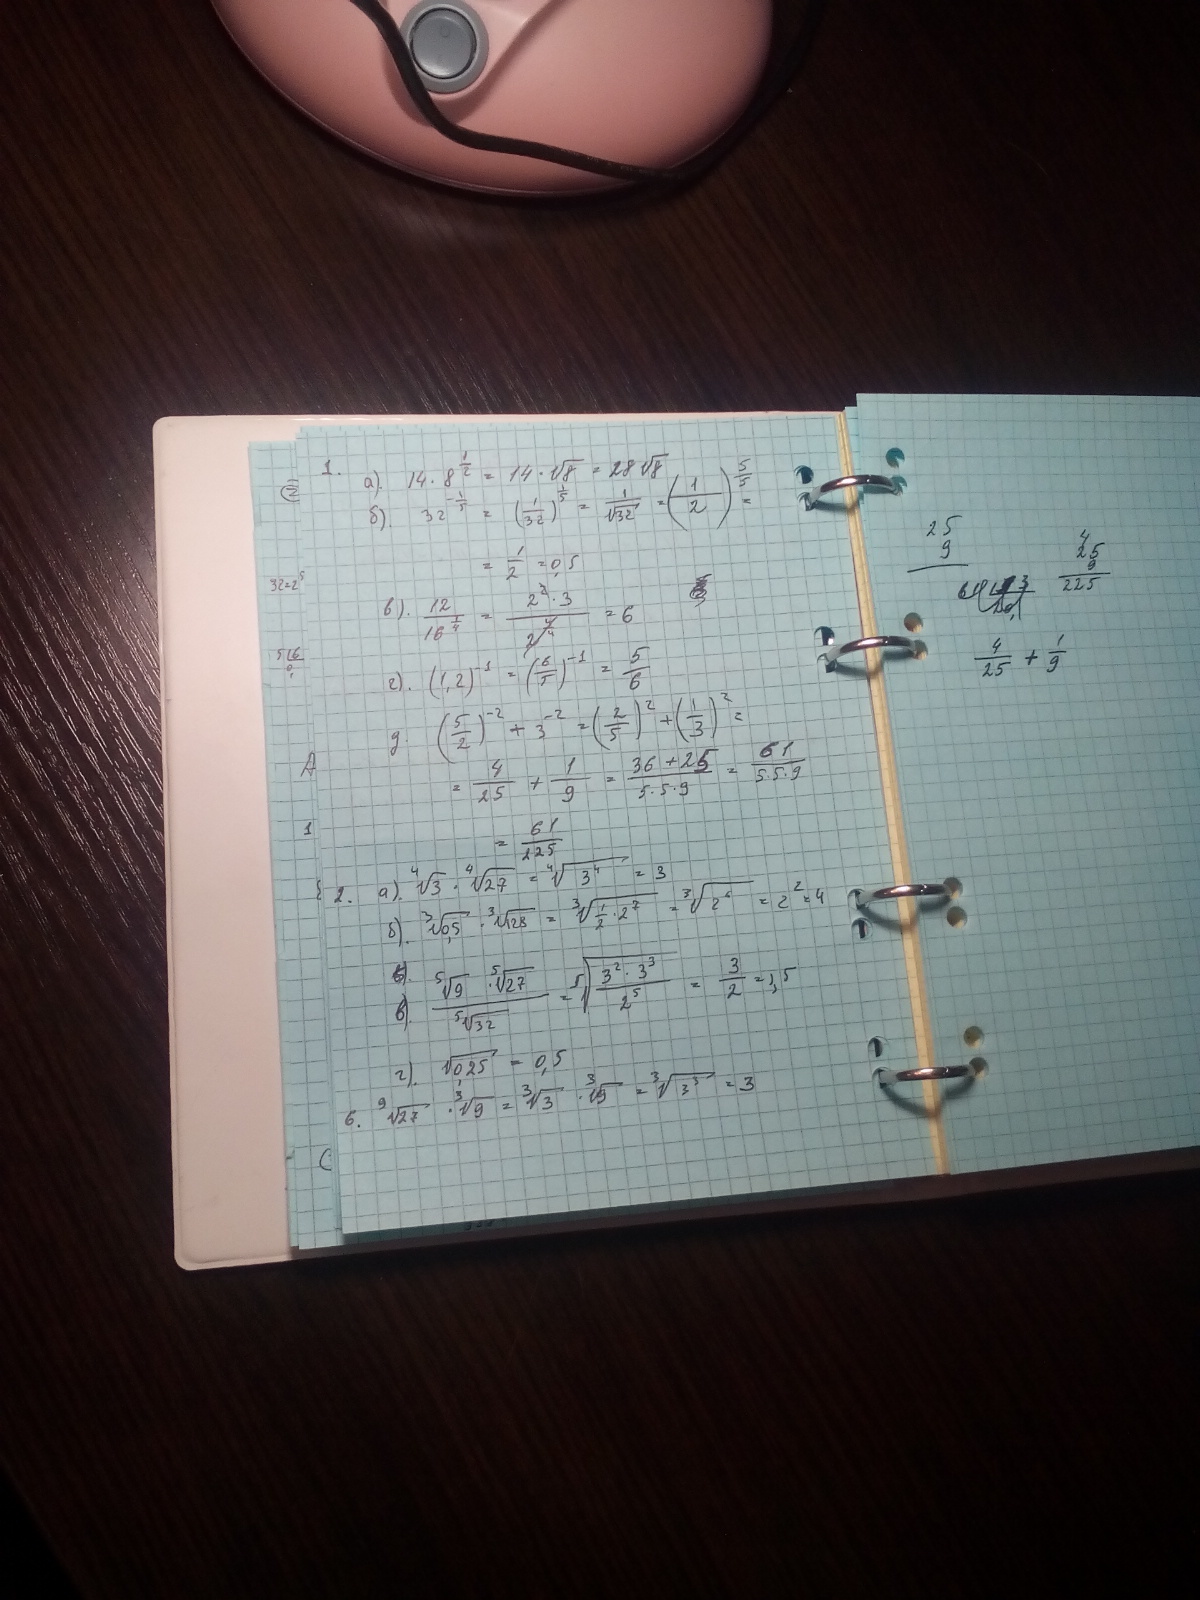 1. а). 14 · 8^(1/2) = 14 · √8 = 28 √8
б). 32^(-1/5) = (1/32)^(1/5) = 1/√32 = (1/2)^(5/5) =
= 1/2 = 0,5
32=2^5
в). 12/16^(1/4) = 2^2 · 3/2^(4/4) = 6
г). (1,2)^-1 = (6/5)^-1 = 5/6
д. (5/2)^-2 + 3^-2 = (2/5)^2 + (1/3)^2 =
= 4/25 + 1/9 = 36 + 25/5·5·9 = 61/5·5·9
= 61/225
2. а). ⁴√3 · ⁴√27 = ⁴√3^4 = 3
б). ³√0,5 · ³√128 = ³√(1/2 · 2^7) = ³√2^6 = 2^2 = 4
в). ⁵√9 · ⁵√27/⁵√32 = ⁵√(3^2 · 3^3/2^5) = 3/2 = 1,5
г). √0,25 = 0,5
6. ⁹√27 · ³√9 = ³√3 · ³√9 = ³√3^3 = 3
25
9
4
25
9
225
4/25 + 1/9